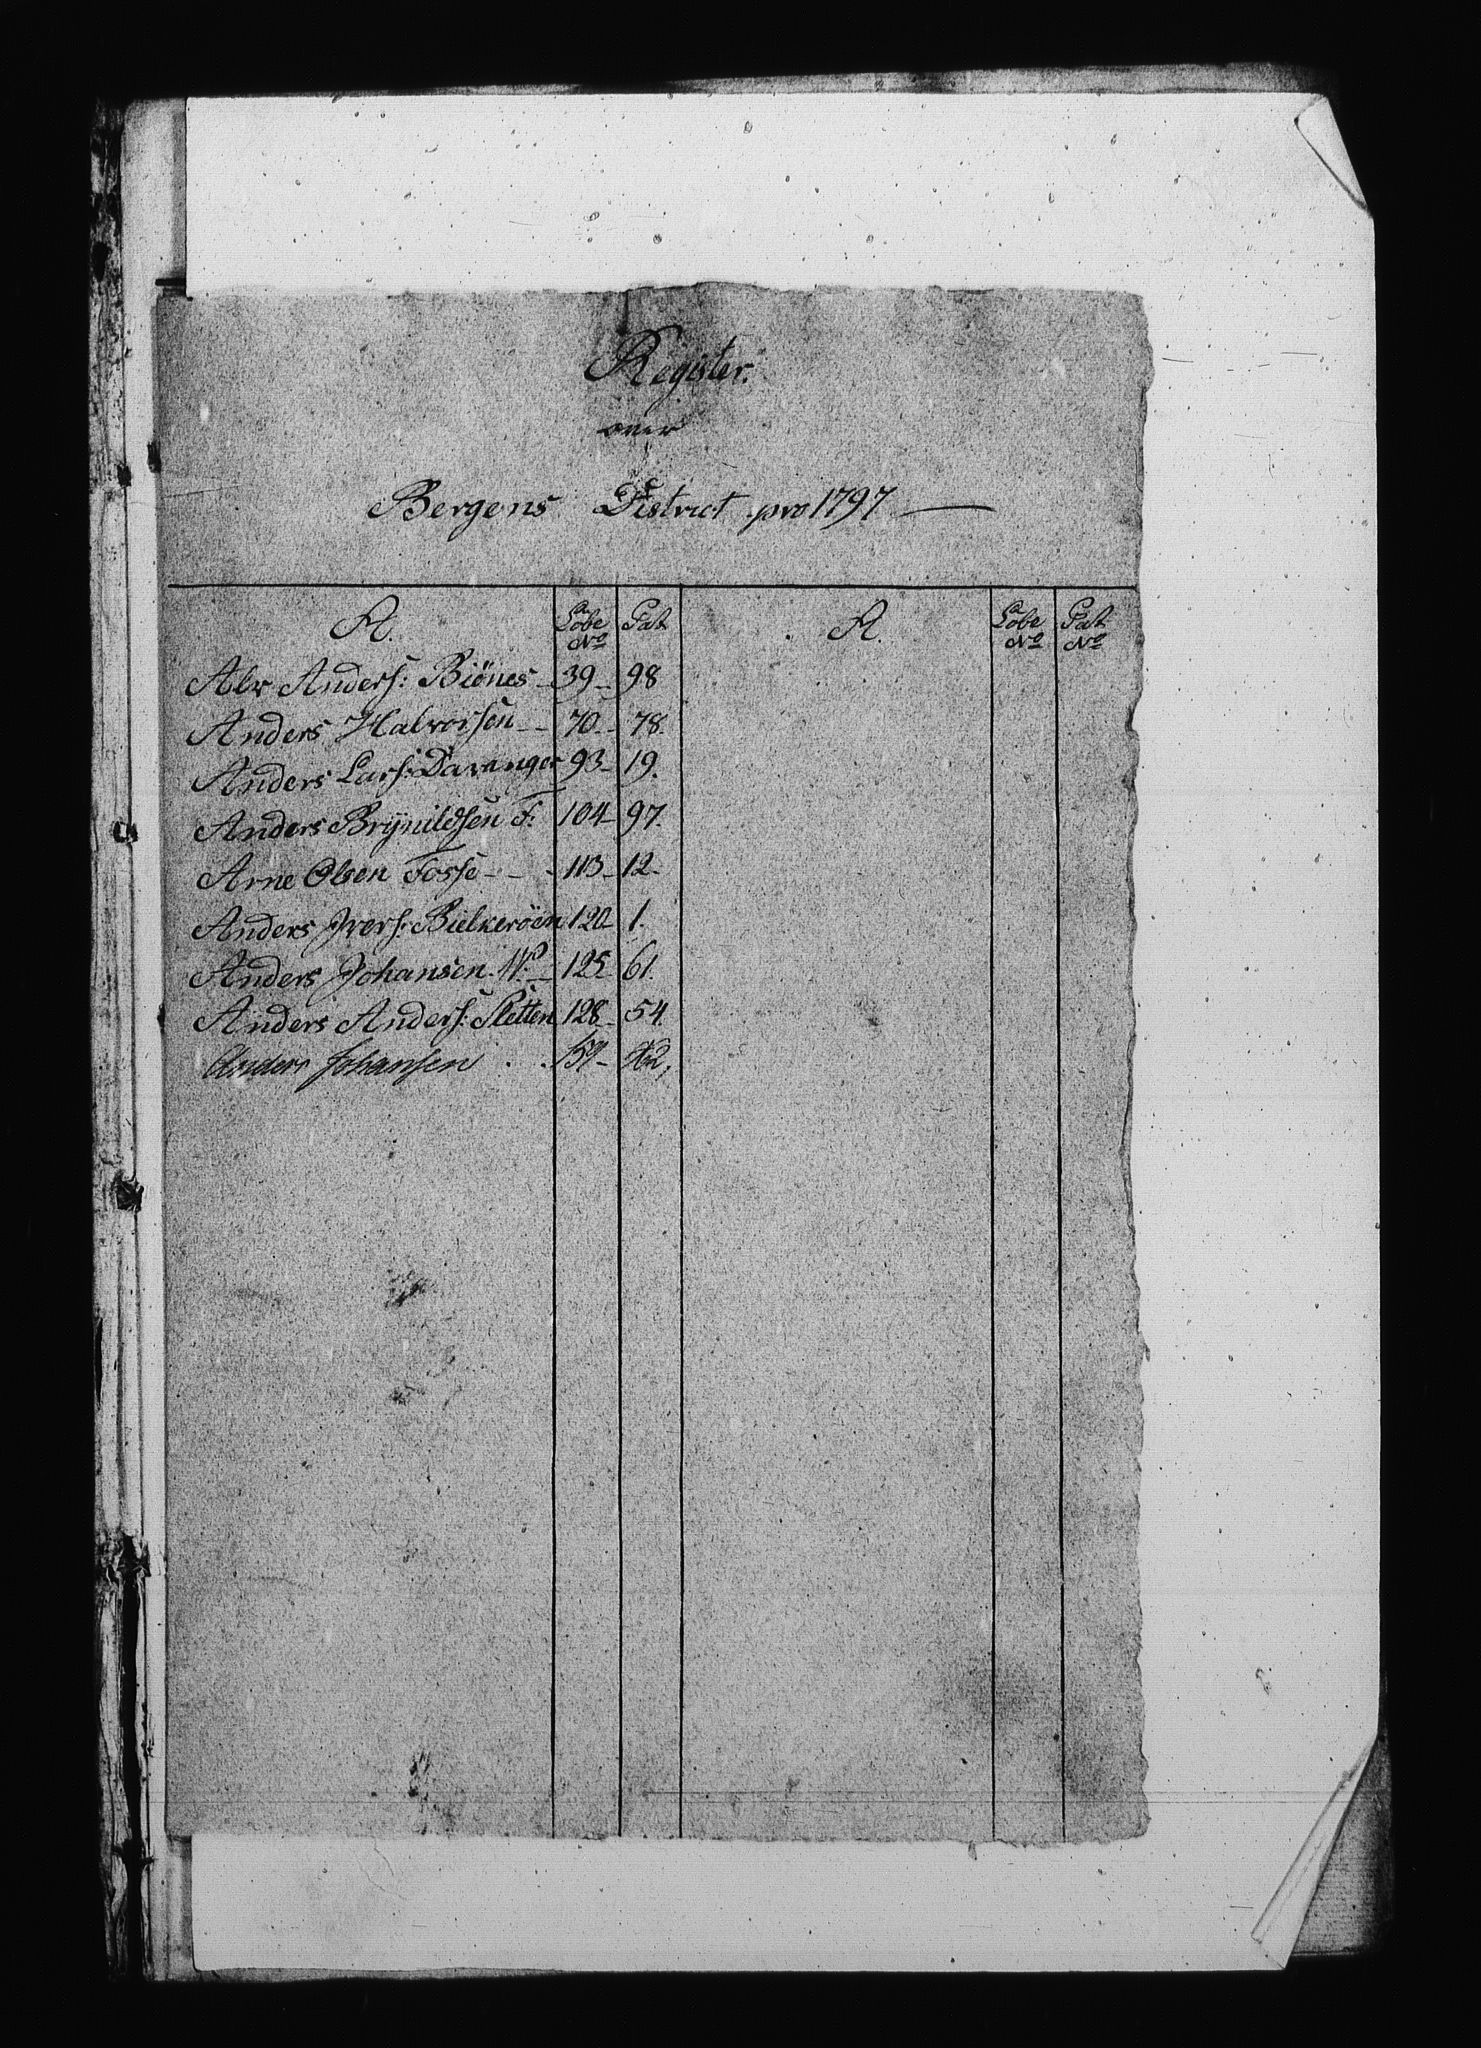 Register.
over
Bergens District pro 1797
A. Löbe No Pat A. Löbe No Pat No
Anders: Biönes 39 98
Anders Halvorsen 70 78.
Anders Lars: Davanger 93 19.
Anders Brÿnildsen F: 104 97.
Arne Olsen Fosse 113 12
Anders Ivers: Bielkeröen 120 1.
Anders Johansen 125 61.
Anders Anders: Sletten 128 54.
Anders Johansen